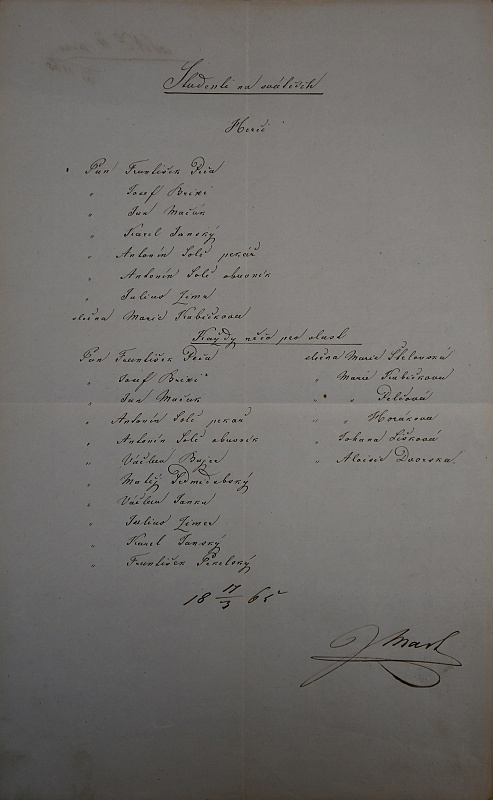 Studenti na svátcích
Herci
Pan František Peča
" Josef Brixi
" Jan Mačák
" Karel Janský
" Antonín Solč pekař
" Antonín Solč obuvník
" Julius Zimr
slečna Marie Kubíčkova
Každý něco pro vlast
Pan František Peča
" Josef Brixi
" Jan Mačák
" Antonín Solč pekař
" Antonín Solč obuvník
" Václav Bajer
" Matěj
" Václav Janka
" Julius Zimer
" Karel Janský
" František Pekelský
slečna Marie
" Marie Kubíčkova
" " Pelšová
" " Horákova
" Johana Lišková
" Aloisie Dvorska.
18 17/3 65
J Mach